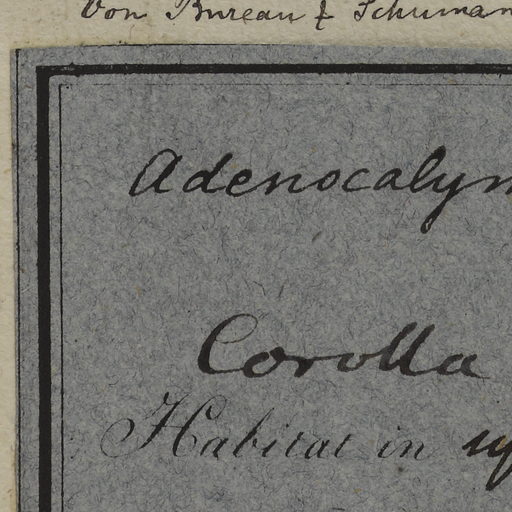 Von Bureau & Schuman
Adenocalym
Corolla
Habitat in